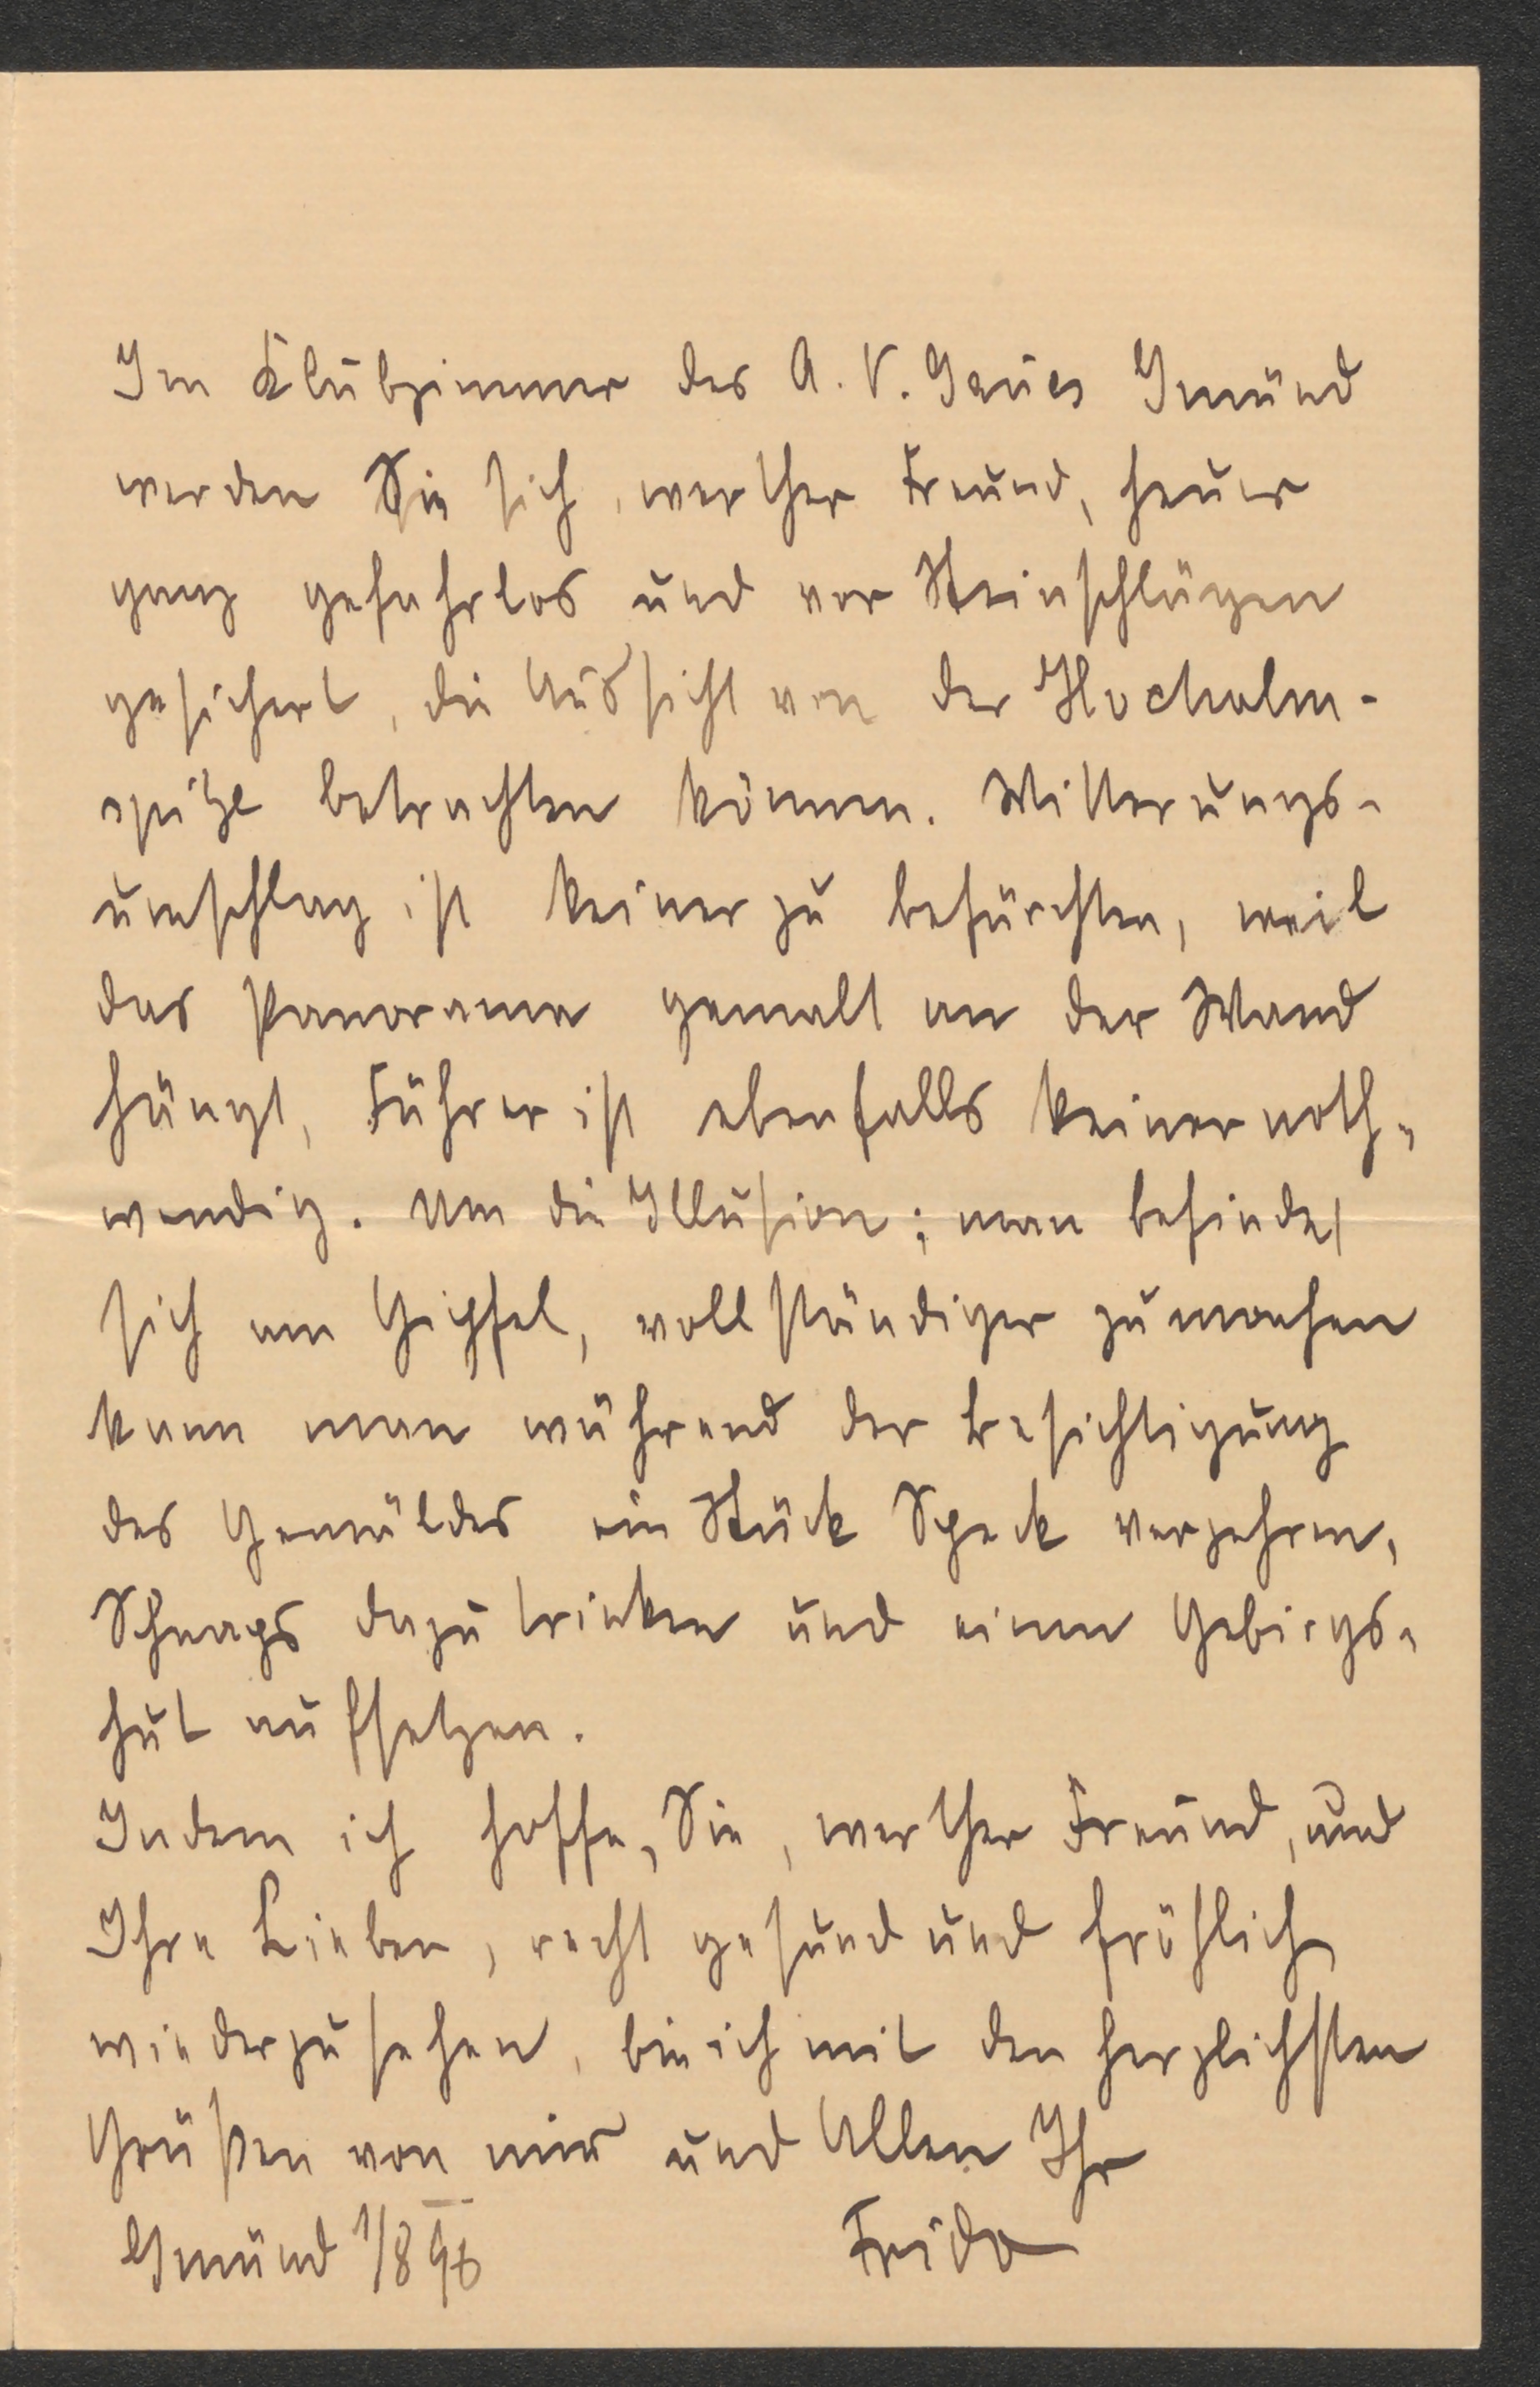 Im Klubzimmer des A. V. Gaues Gmünd
werden Sie sich, werther Freund, heuer
ganz gefahrlos und vor Steinschlägen
gesichert, die Aussicht von der Hochalm-
spitze betrachten können. Witterungs-
umschlag ist keiner zu befürchten, weil
das Panorama gemalt an der Wand
hängt, Führer ist ebenfalls keiner noth-
wendig. Um die Illusion; man befindet
sich am Gipfel, vollständiger zu machen
kann man während der Besichtigung
des Gemäldes ein Stück Speck verzehren,
Schnaps dazu trinken und einen Gebirgs-
hut aufsetzen.
Indem ich hoffe, Sie, werther Freund, und
Ihre Lieben, recht gesund und fröhlich
wiederzusehen, bin ich mit den herzlichsten
Grüßen von mir und Allen Ihr
Gmünd 1/8 98 Frido